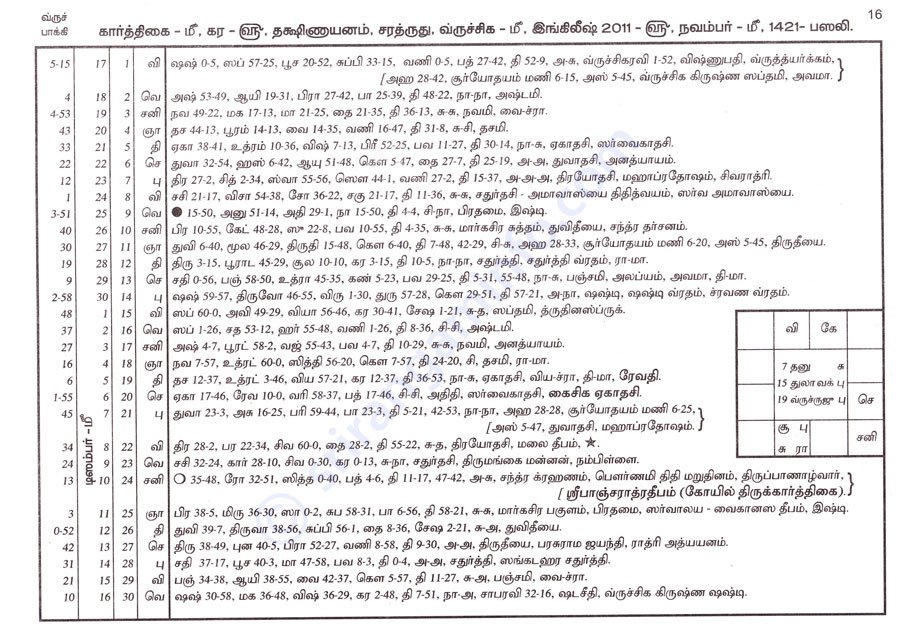 16
வ்ருச்
பாக்கி
கார்த்திகை - மீ, கர - ௵, தக்ஷிணாயனம், சரத்ருது, வ்ருச்சிக - மீ, இங்கிலீஷ் 2011 - ௵, நவம்பர் - மீ, 1421- பஸலி.
5-15 17 1 வி ஷஷ் 0-5, ஸப் 57-25, பூச 20-52, சுப்பி 33-15, வணி 0-5, பத் 27-42, தி 52-9, அ-சு, வ்ருச்சிகரவி 1-52, விஷ்ணுபதி, வ்ருத்த்யர்க்கம்,
[அஹ 28-42, சூர்யோதயம் மணி 6-15, அஸ் 5-45, வ்ருச்சிக கிருஷ்ண ஸப்தமி, அவமா.
4 18 2 வெ அஷ் 53-49, ஆயி 19-31, பிரா 27-42, பா 25-39, தி 48-22, நா-நா, அஷ்டமி.
4-53 19 3 சனி நவ 49-22, மக 17-13, மா 21-25, தை 21-35, தி 36-13, சு-சு, நவமி, வை-ச்ரா.
43 20 4 ஞா தச 44-13, பூரம் 14-13, வை 14-35, வணி 16-47, தி 31-8, சு-சி, தசமி.
33 21 5 தி ஏகா 38-41, உத்ரம் 10-36, விஷ் 7-13, பிரீ 52-25, பவ 11-27, தி 30-14, நா-சு, ஏகாதசி, ஸர்வைகாதசி.
22 22 6 செ துவா 32-54, ஹஸ் 6-42, ஆயு 51-48, கௌ 5-47, தை 27-7, தி 25-19, அ-அ, துவாதசி, அனத்யாயம்.
12 23 7 பு திர 27-2, சித் 2-34, ஸ்வா 55-56, ஸௌ 44-1, வணி 27-2, தி 15-37, அ-அ-அ, திரயோதசி, மஹாப்ரதோஷம், சிவராத்ரி.
1 24 8 வி சசி 21-17, விசா 54-38, சோ 36-22, சகு 21-17, தி 11-36, சு-சு, சதுர்தசி - அமாவாஸ்யை திதித்வயம், ஸர்வ அமாவாஸ்யை.
3-51 25 9 வெ ● 15-50, அனு 51-14, அதி 29-1, நா 15-50, தி 4-4, சி-நா, பிரதமை, இஷ்டி.
40 26 10 சனி பிர 10-55, கேட் 48-28, ஸு 22-8, பவ 10-55, தி 4-35, சு-சு, மார்கசிர சுத்தம், துவிதீயை, சந்த்ர தர்சனம்.
30 27 11 ஞா துவி 6-40, மூல 46-29, திருதி 15-48, கௌ 6-40, தி 7-48, 42-29, சி-சு, அஹ 28-33, சூர்யோதயம் மணி 6-20, அஸ் 5-45, திருதீயை.
19 28 12 தி திரு 3-15, பூராட 45-29, சூல 10-10, கர 3-15, தி 10-5, நா-நா, சதுர்த்தி, சதுர்த்தி வ்ரதம், ரா-மா.
9 29 13 செ சதி 0-56, பஞ் 58-50, உத்ரா 45-35, கண் 5-23, பவ 29-25, தி 5-31, 55-48, நா-சு, பஞ்சமி, அலப்யம், அவமா, தி-மா.
2-58 30 14 பு ஷஷ் 59-57, திருவோ 46-55, விரு 1-30, துரு 57-28, கௌ 29-51, தி 57-21, அ-நா, ஷஷ்டி, ஷஷ்டி வ்ரதம், ச்ரவண வ்ரதம்.
48 1 15 வி ஸப் 60-0, அவி 49-29, வியா 56-46, கர 30-41, சேஷ 1-21, சு-த, ஸப்தமி, த்ருதினஸ்ப்ருக்.
37 2 16 வெ ஸப் 1-26, சத 53-12, ஹர் 55-48, வணி 1-26, தி 8-36, சி-சி, அஷ்டமி.
27 3 17 சனி அஷ் 4-7, பூரட் 58-2, வஜ் 55-43, பவ 4-7, தி 10-29, சு-சு, நவமி, அனத்யாயம்.
16 4 18 ஞா நவ 7-57, உத்ரட் 60-0, ஸித்தி 56-20, கௌ 7-57, தி 24-20, சி, தசமி, ரா-மா.
6 5 19 தி தச 12-37, உத்ரட் 3-46, விய 57-21, கர 12-37, தி 36-53, நா-சு, ஏகாதசி, விய-ச்ரா, தி-மா, ரேவதி.
1-55 6 20 செ ஏகா 17-46, ரேவ 10-0, வரி 58-37, பத் 17-46, சி-சி, அதிதி, ஸர்வைகாதசி, கைசிக ஏகாதசி.
45 7 21 பு துவா 23-3, அசு 16-25, பரி 59-44, பா 23-3, தி 5-21, 42-53, நா-நா, அஹ 28-28, சூர்யோதயம் மணி 6-25,
[அஸ் 5-47, துவாதசி, மஹாப்ரதோஷம்.
டிஸம்பர் - மீ
34 8 22 வி திர 28-2, பர 22-34, சிவ 60-0, தை 28-2, தி 55-22, சு-த, திரயோதசி, மலை தீபம், ★.
24 9 23 வெ சசி 32-24, கார் 28-10, சிவ 0-30, கர 0-13, சு-நா, சதுர்தசி, திருமங்கை மன்னன், நம்பிள்ளை.
13 10 24 சனி ○ 35-48, ரோ 32-51, ஸித்த 0-40, பத் 4-6, தி 11-17, 47-42, அ-சு, சந்த்ர க்ரஹணம், பௌர்ணமி திதி மறுதினம், திருப்பாணாழ்வார்,
[ஸ்ரீபாஞ்சராத்ரதீபம் (கோயில் திருக்கார்த்திகை).
3 11 25 ஞா பிர 38-5, மிரு 36-30, ஸா 0-2, சுப 58-31, பா 6-56, தி 58-21, சு-சு, மார்கசிர பகுளம், பிரதமை, ஸர்வாலய - வைகானஸ தீபம், இஷ்டி.
0-52 12 26 தி துவி 39-7, திருவா 38-56, சுப்பி 56-1, தை 8-36, சேஷ 2-21, சு-அ, துவிதீயை.
42 13 27 செ திரு 38-49, புன 40-5, பிரா 52-27, வணி 8-58, தி 9-30, அ-அ, திருதீயை, பரசுராம ஜயந்தி, ராத்ரி அத்யயனம்.
31 14 28 பு சதி 37-17, பூச 40-3, மா 47-58, பவ 8-3, தி 0-4, அ-அ, சதுர்த்தி, ஸங்கடஹர சதுர்த்தி.
21 15 29 வி பஞ் 34-38, ஆயி 38-55, வை 42-37, கௌ 5-57, தி 11-27, சு-அ, பஞ்சமி, வை-ச்ரா.
10 16 30 வெ ஷஷ் 30-58, மக 36-48, விஷ் 36-29, கர 2-48, தி 7-51, நா-அ, சாபரவி 32-16, ஷடசீதி, வ்ருச்சிக கிருஷ்ண ஷஷ்டி.
வி கே
7 தனு சு
15 துலா வக் பு
19 வ்ருச்ருஜு பு
செ
சூ பு
சு ரா
சனி